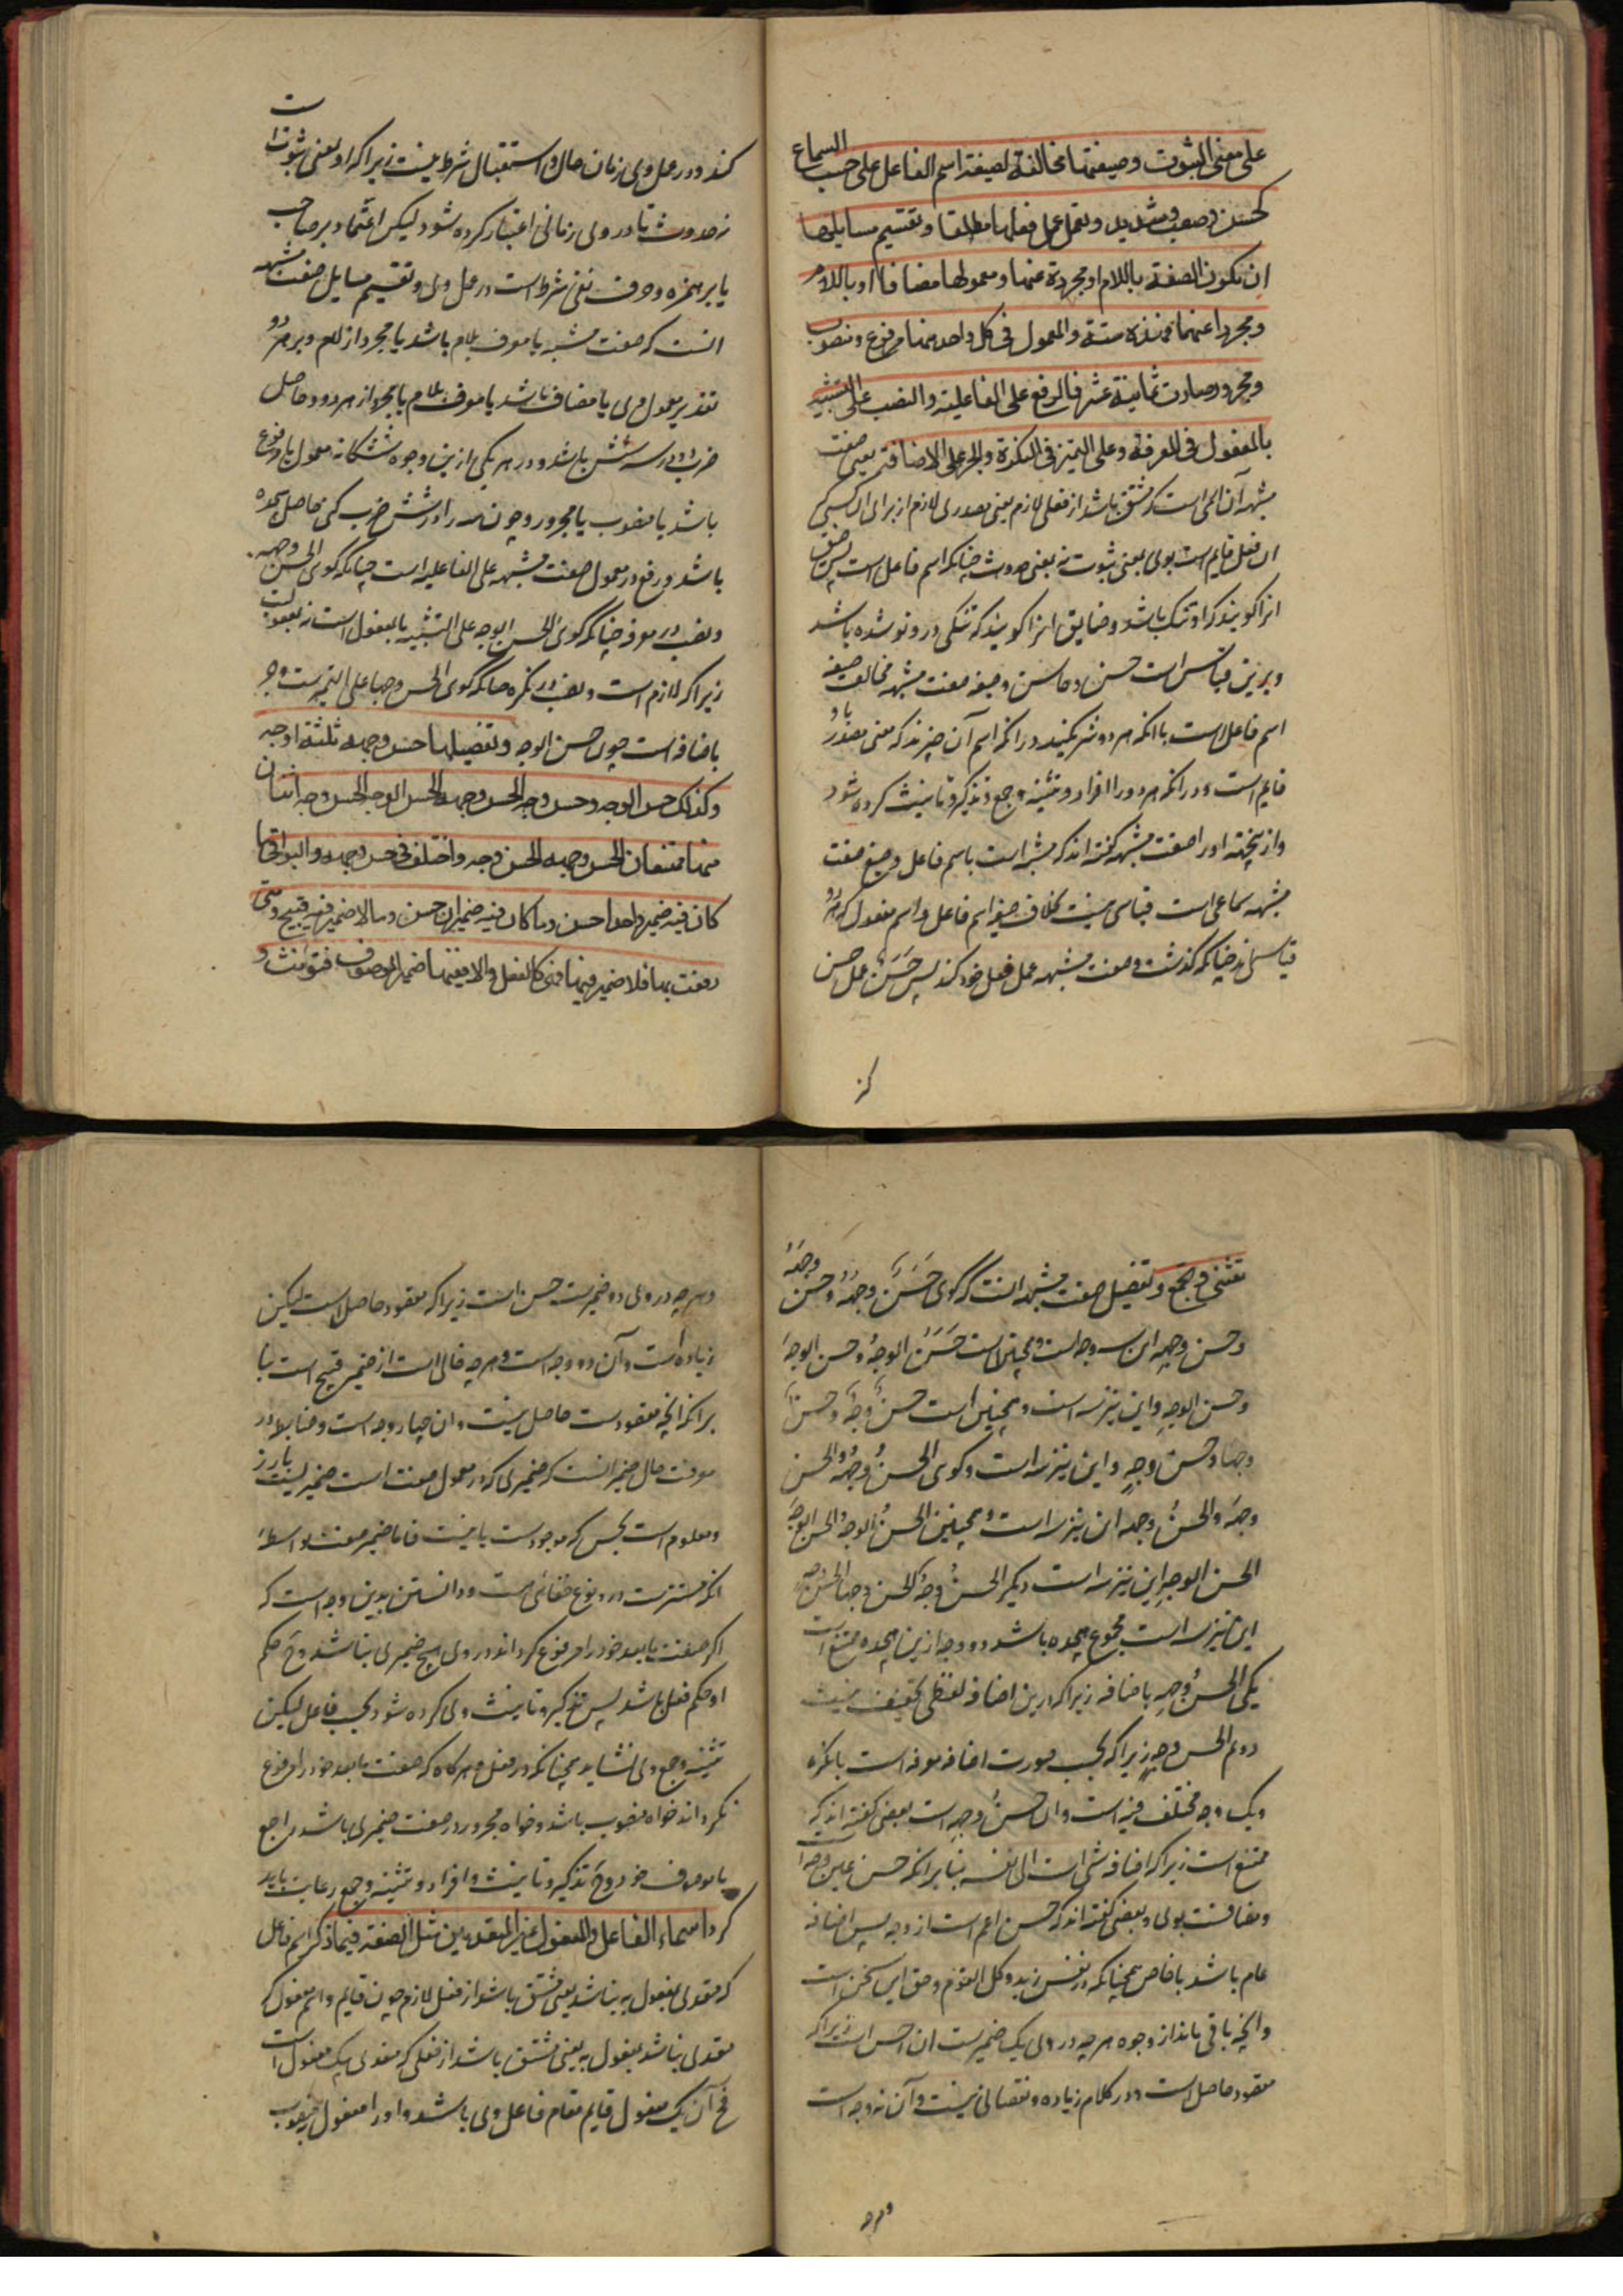 على معنى الثبوت وصيغتها مخالفة لصيغة اسم الفاعل على حسب السماع
كحسن وصعب وشديد وتعمل عمل فعلها مطلقا وتقسيم مسايلها
ان تكون الصفة باللام او مجردة عنها ومعمولها مضافا او باللام
ومجردا عنهما فهذه ستة والمعمول فى كل واحد منها مرفوع ومنصوب
ومجرور صارت ثمانية عشر فالرفع على الفاعلية والنصب على التشبيه
بالمفعول فى المعرفة وعلى التميز فى النكرة والجر على الاضافة يعنى صفت
مشبهه آن اسمى است كه مشتق باشد از فعلى لازم يعنى مصدرى لازم از براى آن كسى كه
ان فعل قايم است بوى بمعنى ثبوت نه بمعنى حدوث چنانكه اسم فاعل است پس ضيق
انرا گويند كه او تنگ باشد و ضايق انرا گويند كه تنگى در و نو شده باشد
و برين قياس است حسن و حاسن و صيغه صفت مشبهه مخالف صيغه
اسم فاعل است با انكه هر دو شريكند در انكه اسم آن چيزند كه معنى مصدر باو
قايم است و در انكه هر دو را افراد و تثنيه و جمع و تذكير و تانيث كرده شود
و از ينجهة او را صفت مشبهه گفته اند كه مشبه است باسم فاعل و صيغ صفت
مشبهه سماعى است قياسى نيست بخلاف صيغ اسم فاعل و اسم مفعول كه هر دو
قياسى اند چنانكه گذشت و صفت مشبهه عمل فعل خود كند پس حَسَنٌ عمل حسن
كند و در عمل وى زمان حال و استقبال شرط نيست زيرا كه او بمعنى ثبوت است
نه حدوث تا در وى زمانى اعتبار كرده شود ليكن اعتماد بر صاحب
يا بر همزه و حرف نفى شرط است در عمل وى و تقسيم مسايل صفت مشبهه
انست كه صفت مشبه يا معرف بلام باشد يا مجرد از لام و بر هر دو
تقدير معمول وى يا مضاف باشد يا معرف بلام يا مجرد از هر دو و حاصل
ضرب دو در سه شش باشد و در هر يكى ازين وجوه ششگانه معمول يا مرفوع
باشد يا منصوب يا مجرور و چون سه را در شش ضرب كنى حاصل هجده
باشد و رفع در معمول صفت مشبهه على الفاعليه است چنانكه گوى الحسن وجهه
و نصب در معرفه چنانكه گوى الحسن الوجه على التشبيه بالمفعول است نه مفعوليت
زيرا كه لازم است و نصب در نكره چنانكه گوى الحسن وجها على التميز است و جر
باضافه است چون حسن الوجه وتفصيلها حسن وجهه ثلثة اوجه
وكذلك حسن الوجه وحسن وجه الحسن وجهه الحسن الوجه الحسن وجه اثنان
منها ممتنعان الحسن وجهه الحسن وجه واختلف فى حسن وجهه والبواقى ما
كان فيه ضمير واحد احسن وما كان فيه ضميران حسن وما لا ضمير فيه قبيح ومتى
رفعت بها فلا ضمير فيها فهى كالفعل والا ففيها ضمير الموصوف فتؤنث و
تثنى و تجمع و تفصيل صفت مشبهه انست كه گوى حَسَنٌ وجهُهُ وحسن وجهَهُ
وحسن وجهِهِ اين سه وجه است و همچنين است حَسَنٌ الوجهُ وحسن الوجهَ
وحسن الوجهِ و اين نيز سه است و همچنين است حسنٌ وجهٌ وحسنٌ
وجها وحسن وجهٍ و اين نيز سه است و گوى الحسنُ وجهُهُ والحسن
وجهَهُ والحسنُ وجهه اين نيز سه است و همچنين الحسنُ الوجهُ الحسن الوجهَ
الحسن الوجهِ اين نيز سه است ديگر الحسنُ وجهٌ الحسن وجها الحسن وجهٍ
اين نيز سه است مجموع هجده باشد دو وجه ازين هجده ممتنع است
يكى الحسنُ وجهِهِ باضافه زيرا كه درين اضافه لفظى تخفيف نيست
دويم الحسن وجهٍ زيرا كه بحسب صورت اضافه معرفه است بانكره
و يك وجه مختلف فيه است و ان حسنُ وجهِهِ است بعضى گفته اند كه
ممتنع است زيرا كه اضافه شى است الى نفسه بنا بر انكه حسن عين وجه است
و مضافست بوى و بعضى گفته اند كه حسن اعم است از وجه پس اضافه
عام باشد با خاص همچنانكه در نفس زيد و كل القوم و حق اين سخن است
و انچه باقى ماند از وجوه هر چه در وى يك ضمير است ان احسن است زيرا كه
مقصود حاصل است و در كلام زياده و نقصانى نيست و آن نه وجه است
و هر چه در وى دو ضمير است حسن است زيرا كه مقصود حاصل است ليكن
زياده است و آن دو وجه است و هر چه خالى است از ضمير قبيح است بنا
بر انكه انچه مقصود است حاصل نيست و ان چهار وجه است و ضابطه در
معرفت حال ضمير انست كه ضميرى كه در معمول صفت است ضميريست بارز
و معلوم است بحس كه موجود است يا نيست فاما ضمير صفت بواسطهٔ
انكه مستتر است در و نوع خفائى است و دانستن بدين وجه است كه
اگر صفت ما بعد خود را مرفوع گرداند در وى هيچ ضميرى نباشد و ح حكم
او حكم فعل باشد پس تذكير و تانيث وى كرده شود بحسب فاعل ليكن
تثنيه و جمع وى نشايد همچنانكه در فعل و هر گاه كه صفت ما بعد خود را مرفوع
نگرداند خواه منصوب باشد و خواه مجرور در صفت ضميرى باشد راجع
با موصوف خود و ح تذكير و تانيث و افراد و تثنيه و جمع رعايت بايد
كرد اسماء الفاعل والمفعول غير المتعديين مثل الصفة فيما ذكر اسم فاعل
كه متعدى بمفعول به نباشد يعنى مشتق باشد از فعل لازم چون قايم و اسم مفعول كه
متعدى نباشد بمفعول به يعنى مشتق باشد از فعلى كه متعدى بيك مفعول است
ح آن يك مفعول قايم مقام فاعل وى باشد و او را مفعول منصوب